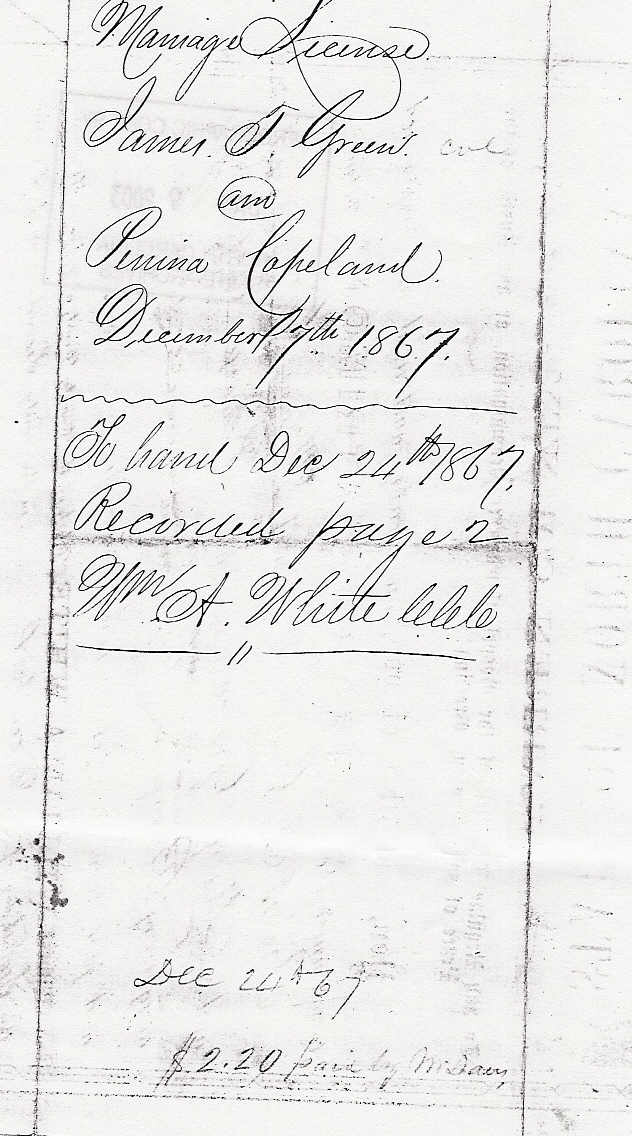 Marriage License
James. T. Green. col
and
Penina Copeland.
December 7th 1867.
To hand Dec 24th 1867.
Recorded page 2
Wm A. White C.C.C.
Dec 24th 67
$2.20 paid by